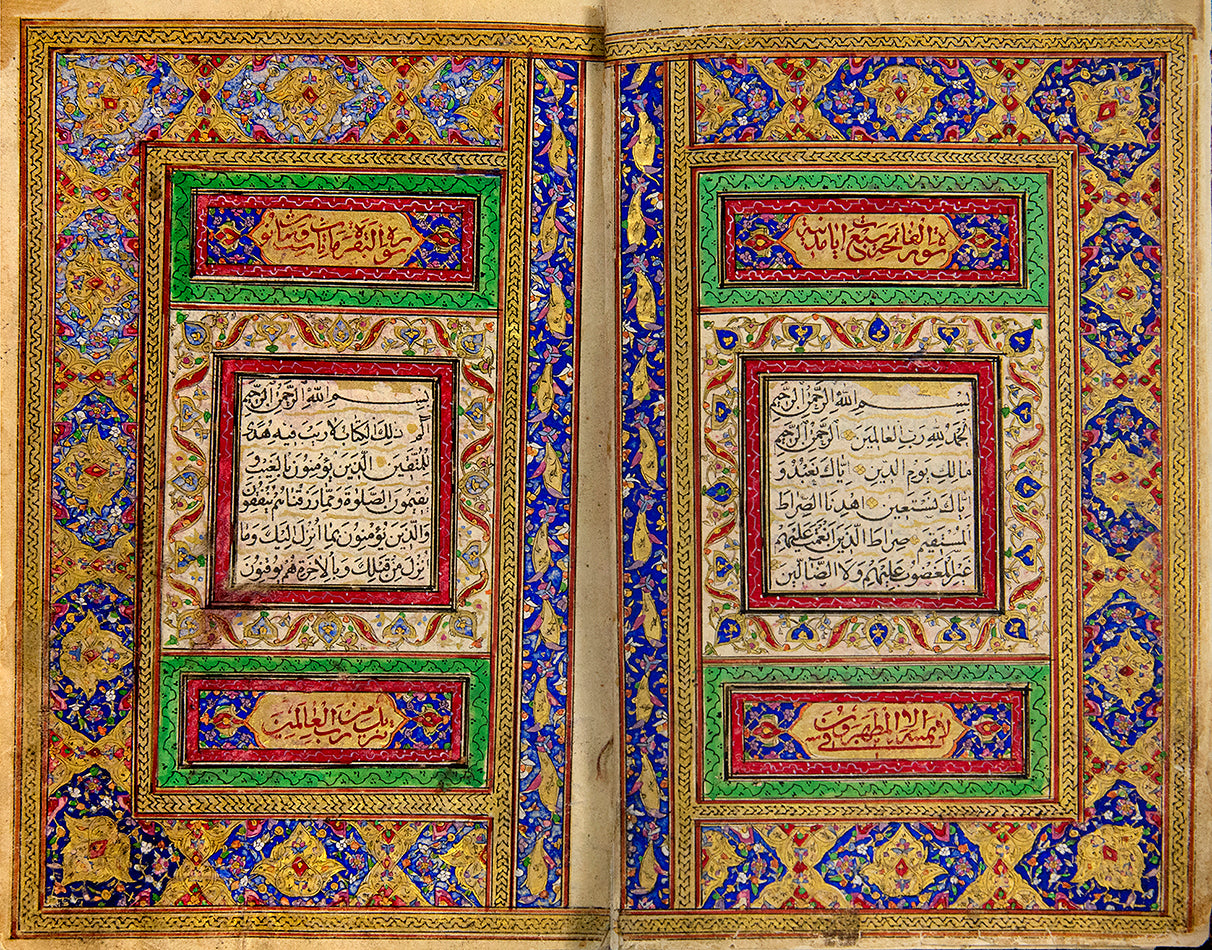 سورة الفاتحة سبع آيات مدنية
بسم الله الرحمن الرحيم
الحمد لله رب العالمين الرحمن الرحيم
مالك يوم الدين اياك نعبد و
اياك نستعين اهدنا الصراط
المستقيم صراط الذين انعمت عليهم
غير المغضوب عليهم ولا الضالين
لا يمسه الا المطهرون
سورة البقرة مائتان وست
بسم الله الرحمن الرحيم
الم ذلك الكتاب لا ريب فيه هدى
للمتقين الذين يؤمنون بالغيب و
يقيمون الصلوة ومما رزقناهم ينفقون
والذين يؤمنون بما انزل اليك وما
نزل من قبلك وبالاخرة هم يوقنون
تنزيل من رب العالمين